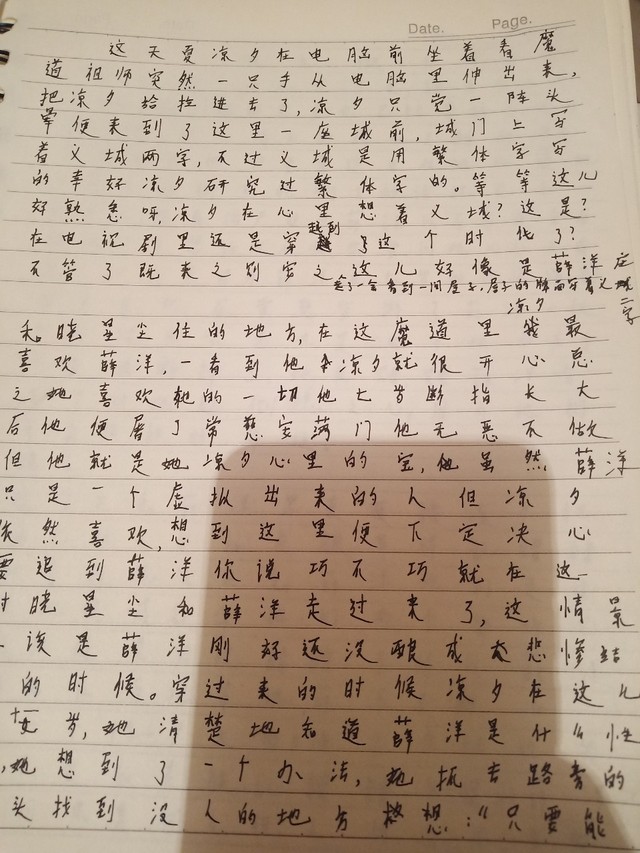 Date. Page.
这天夏凉夕在电脑前坐着看魔
道祖师突然一只手从电脑里伸出来,
把凉夕给拉进去了,凉夕只觉一阵头
晕便来到了这里一座城前,城门上写
着义城两字,不过义城是用繁体字写
的幸好凉夕研究过繁体字的。等等这儿
好熟悉呀,凉夕在心里想着义城?这是?
在电视剧里还是穿越到了这个时代了?
不管了既来之则安之这儿好像是薛洋
走了一会看到一间屋子,屋子的牌面写着义庄二字
和晓星尘住的地方,在这魔道里凉夕最
喜欢薛洋,一看到他凉夕就很开心总
之她喜欢他的一切他七岁断指长大
后他便屠了常慈安满门他无恶不做
但他就是她凉夕心里的宝,他虽然薛洋
只是一个虚拟出来的人但凉夕
依然喜欢,想到这里便下定决心
要追到薛洋你说巧不巧就在这
时晓星尘和薛洋走过来了,这情景
应该是薛洋刚好还没酿成大悲惨结
的时候。穿过来的时候凉夕在这儿
岁,她清楚地知道薛洋是什么性
,她想到了一个办法,她抓去路旁的
头找到没人的地方想:“只要能